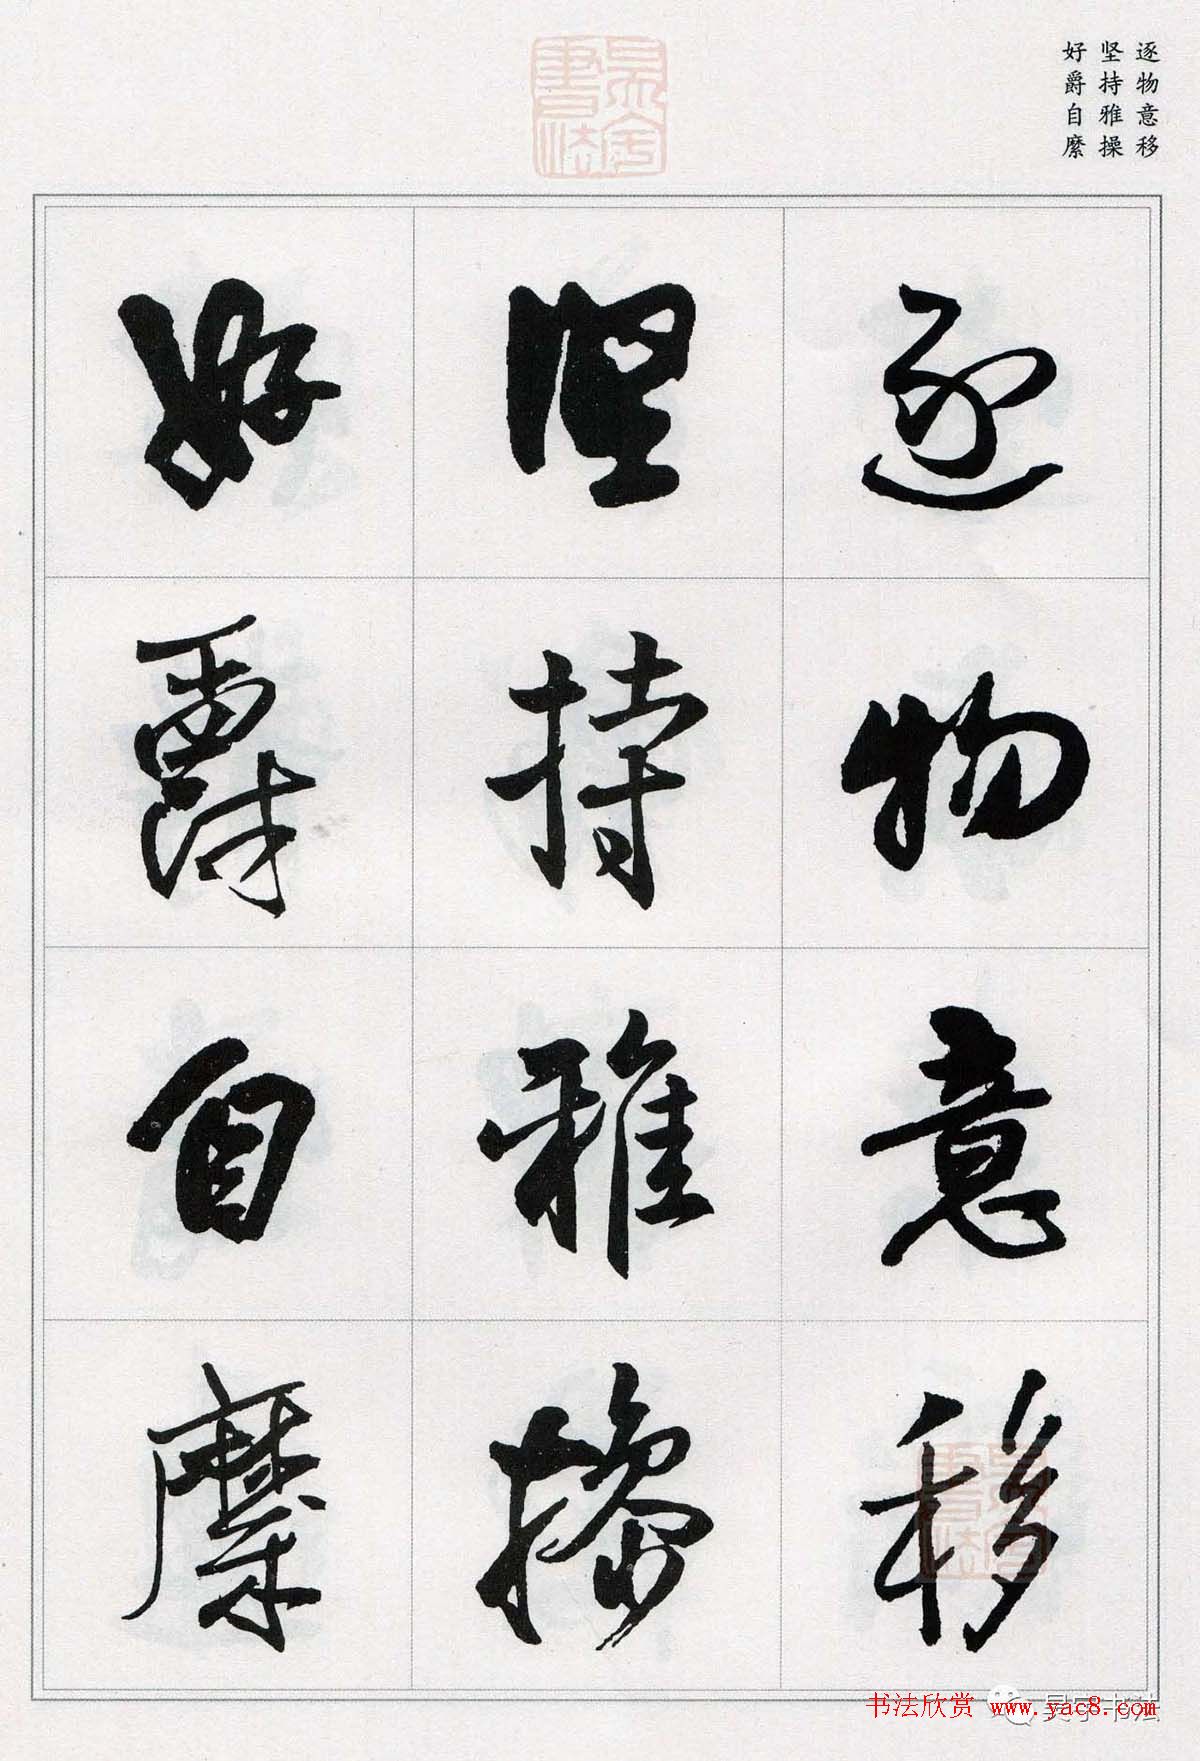 逐物意移
坚持雅操
好爵自縻
逐物意移
坚持雅操
好爵自縻
书法欣赏 www.yac8.com